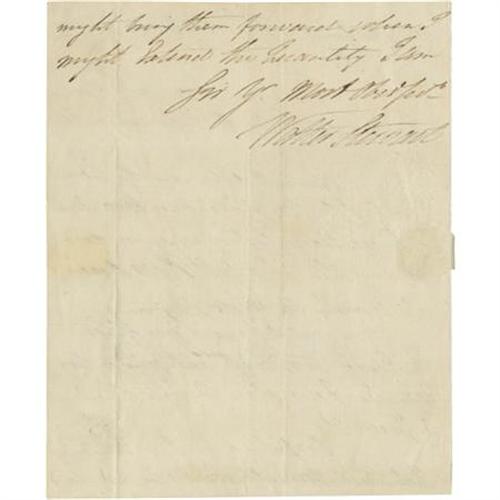 might bring them forward when I
might Extend the Quantity I am
Sir Yr. Most Obed Sert.
Walter Stewart